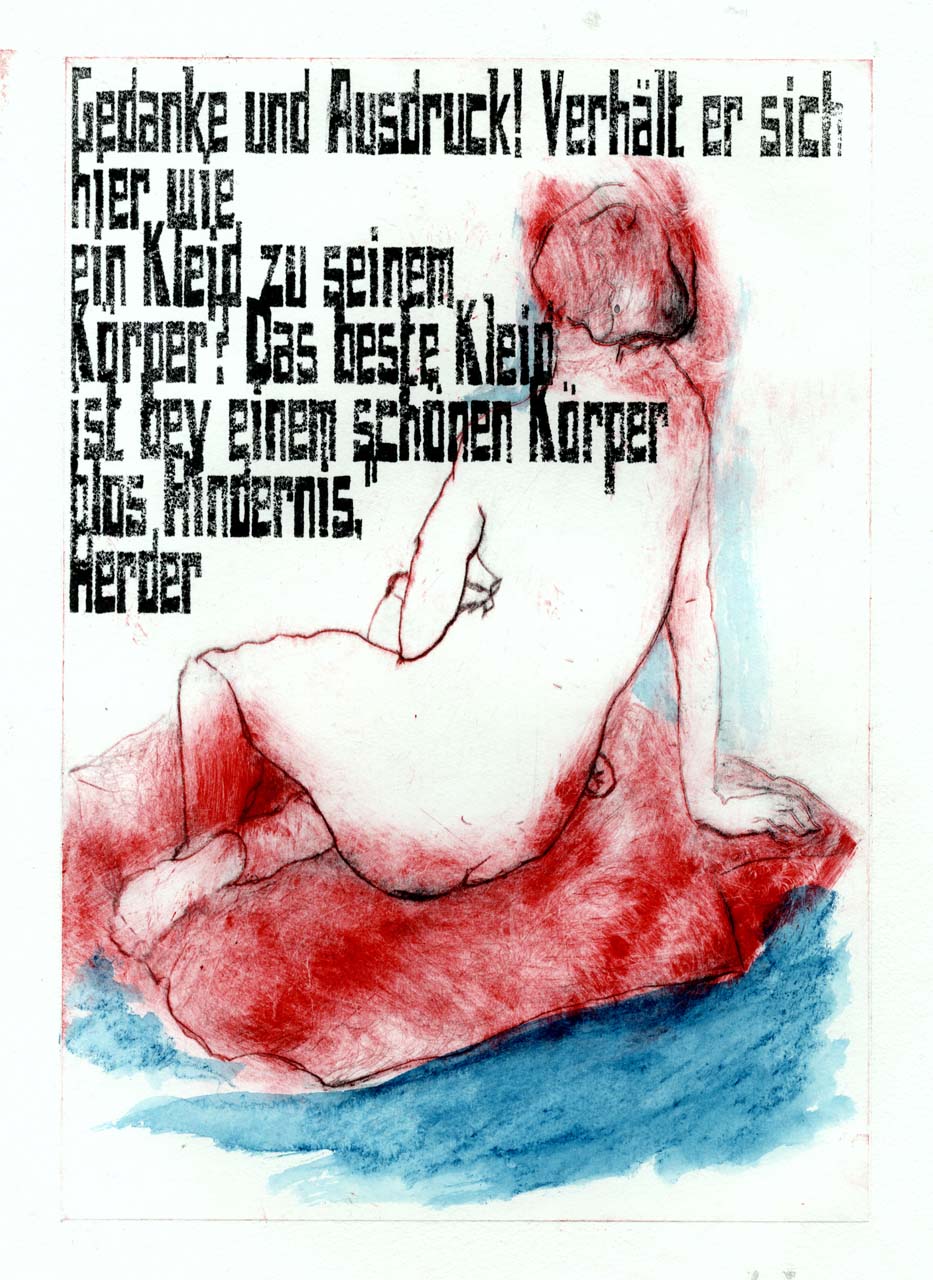 Gedanke und Ausdruck! Verhält er sich
hier wie
ein Kleid zu seinem
Körper? Das beste Kleid
ist bey einem schönen Körper
blos Hindernis."
Herder